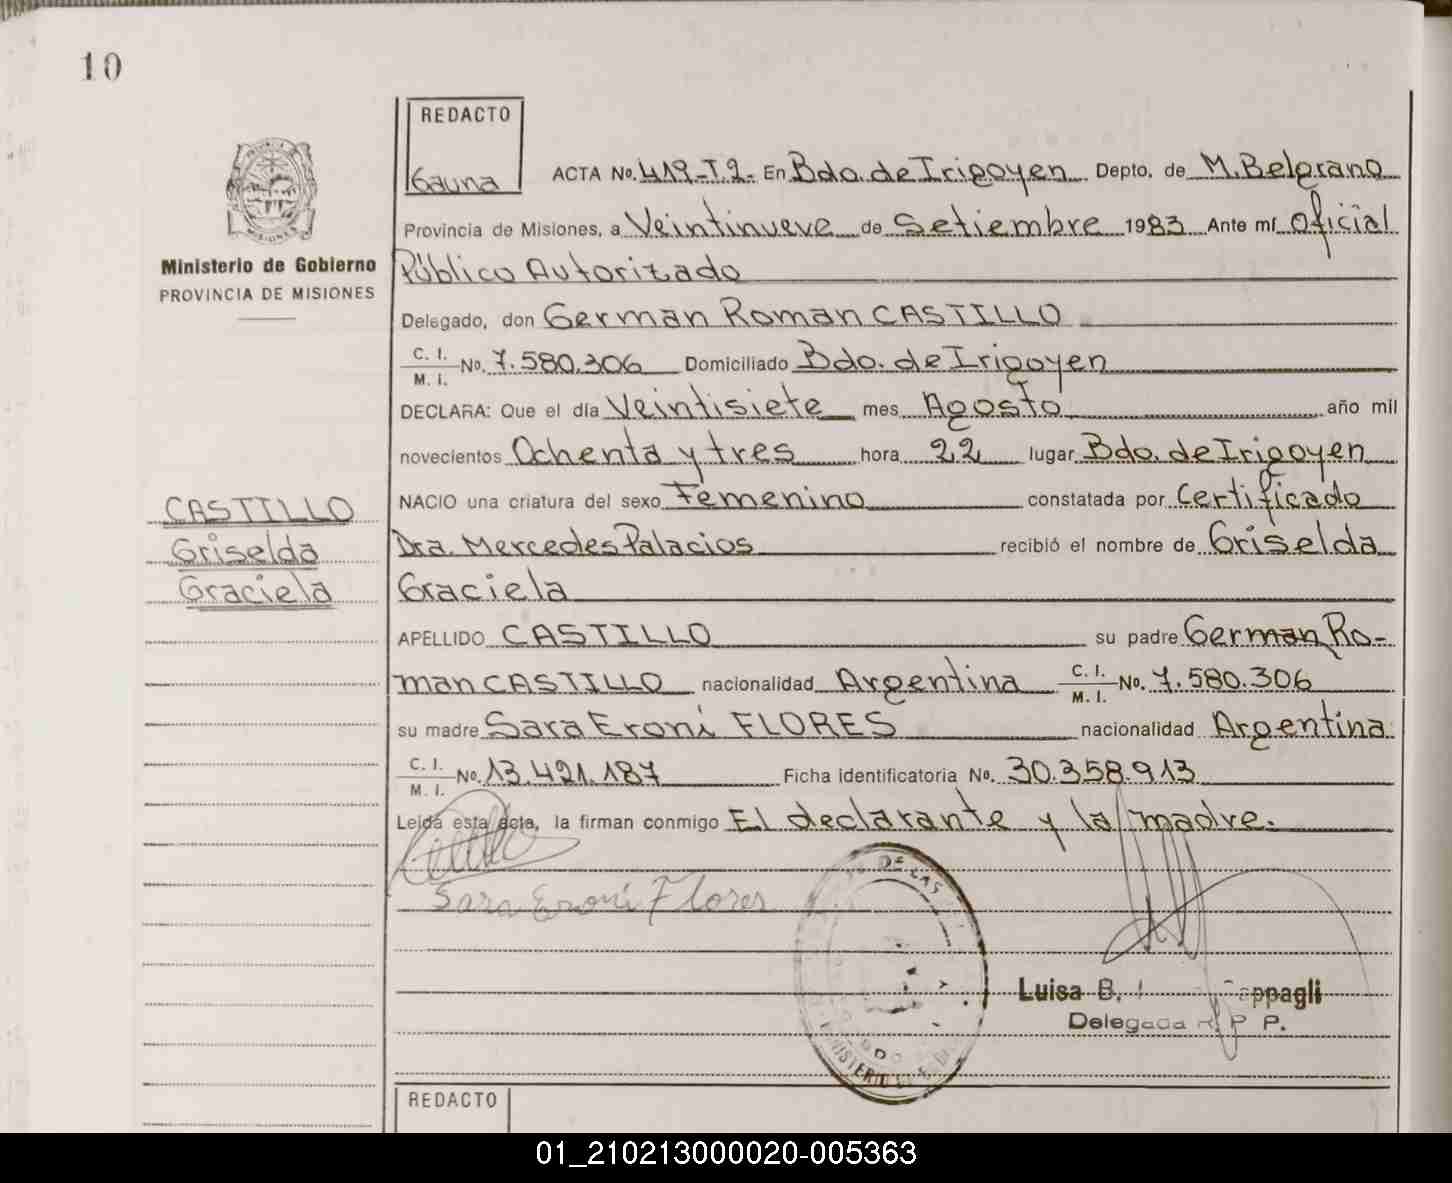 10
REDACTO
Gauna
ACTA No. 419-T.2- En Bdo. de Irigoyen Depto. de M. Belgrano
Provincia de Misiones, a Veintinueve de Setiembre 1983 Ante mí Oficial
Público Autorizado
Ministerio de Gobierno
PROVINCIA DE MISIONES
Delegado, don German Roman CASTILLO
C. I.
M. I. No. 7.580.306 Domiciliado Bdo. de Irigoyen
DECLARA: Que el día Veintisiete mes Agosto año mil
novecientos Ochenta y tres hora 22 lugar Bdo. de Irigoyen
NACIO una criatura del sexo Femenino constatada por Certificado
Dra. Mercedes Palacios recibió el nombre de Griselda
Graciela
CASTILLO
Griselda
Graciela
APELLIDO CASTILLO su padre German Ro-
man CASTILLO nacionalidad Argentina C. I.
M. I. No. 7.580.306
su madre Sara Eroni FLORES nacionalidad Argentina
C. I.
M. I. No. 13.421.187 Ficha identificatoria No. 30.358.913
Leida esta acta, la firman conmigo El declarante y la madre.
Sara Eroni Flores
DE LAS
Luisa B. ppagli
Delegada R. P P.
REDACTO
01_210213000020-005363